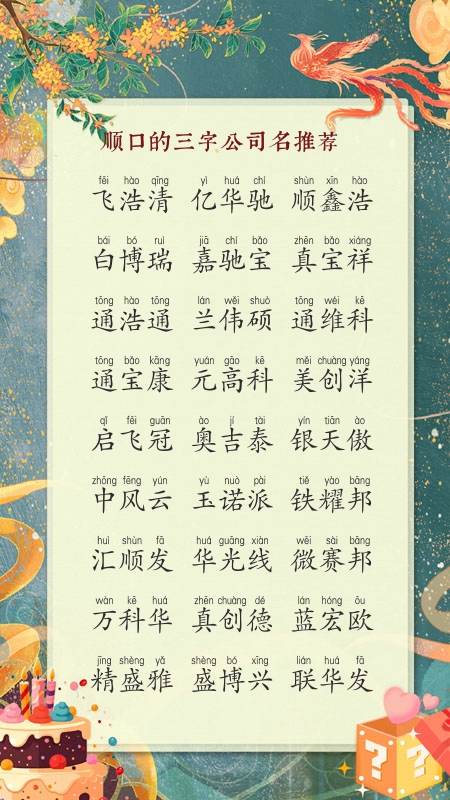 顺口的三字公司名推荐
fēi hào qīng yì huá chí shùn xīn hào
飞浩清 亿华驰 顺鑫浩
bái bó ruì jiā chí bǎo zhēn bǎo xiáng
白博瑞 嘉驰宝 真宝祥
tōng hào tōng lán wěi shuò tōng wéi kē
通浩通 兰伟硕 通维科
tōng bǎo kāng yuán gāo kē měi chuàng yáng
通宝康 元高科 美创洋
qǐ fēi guān ào jí tài yín tiān ào
启飞冠 奥吉泰 银天傲
zhōng fēng yún yù nuò pài tiě yào bāng
中风云 玉诺派 铁耀邦
huì shùn fā huá guāng xiàn wēi sài bāng
汇顺发 华光线 微赛邦
wàn kē huá zhēn chuàng dé lán hóng ōu
万科华 真创德 蓝宏欧
jīng shèng yǎ shèng bó xīng lián huá fā
精盛雅 盛博兴 联华发
? ?